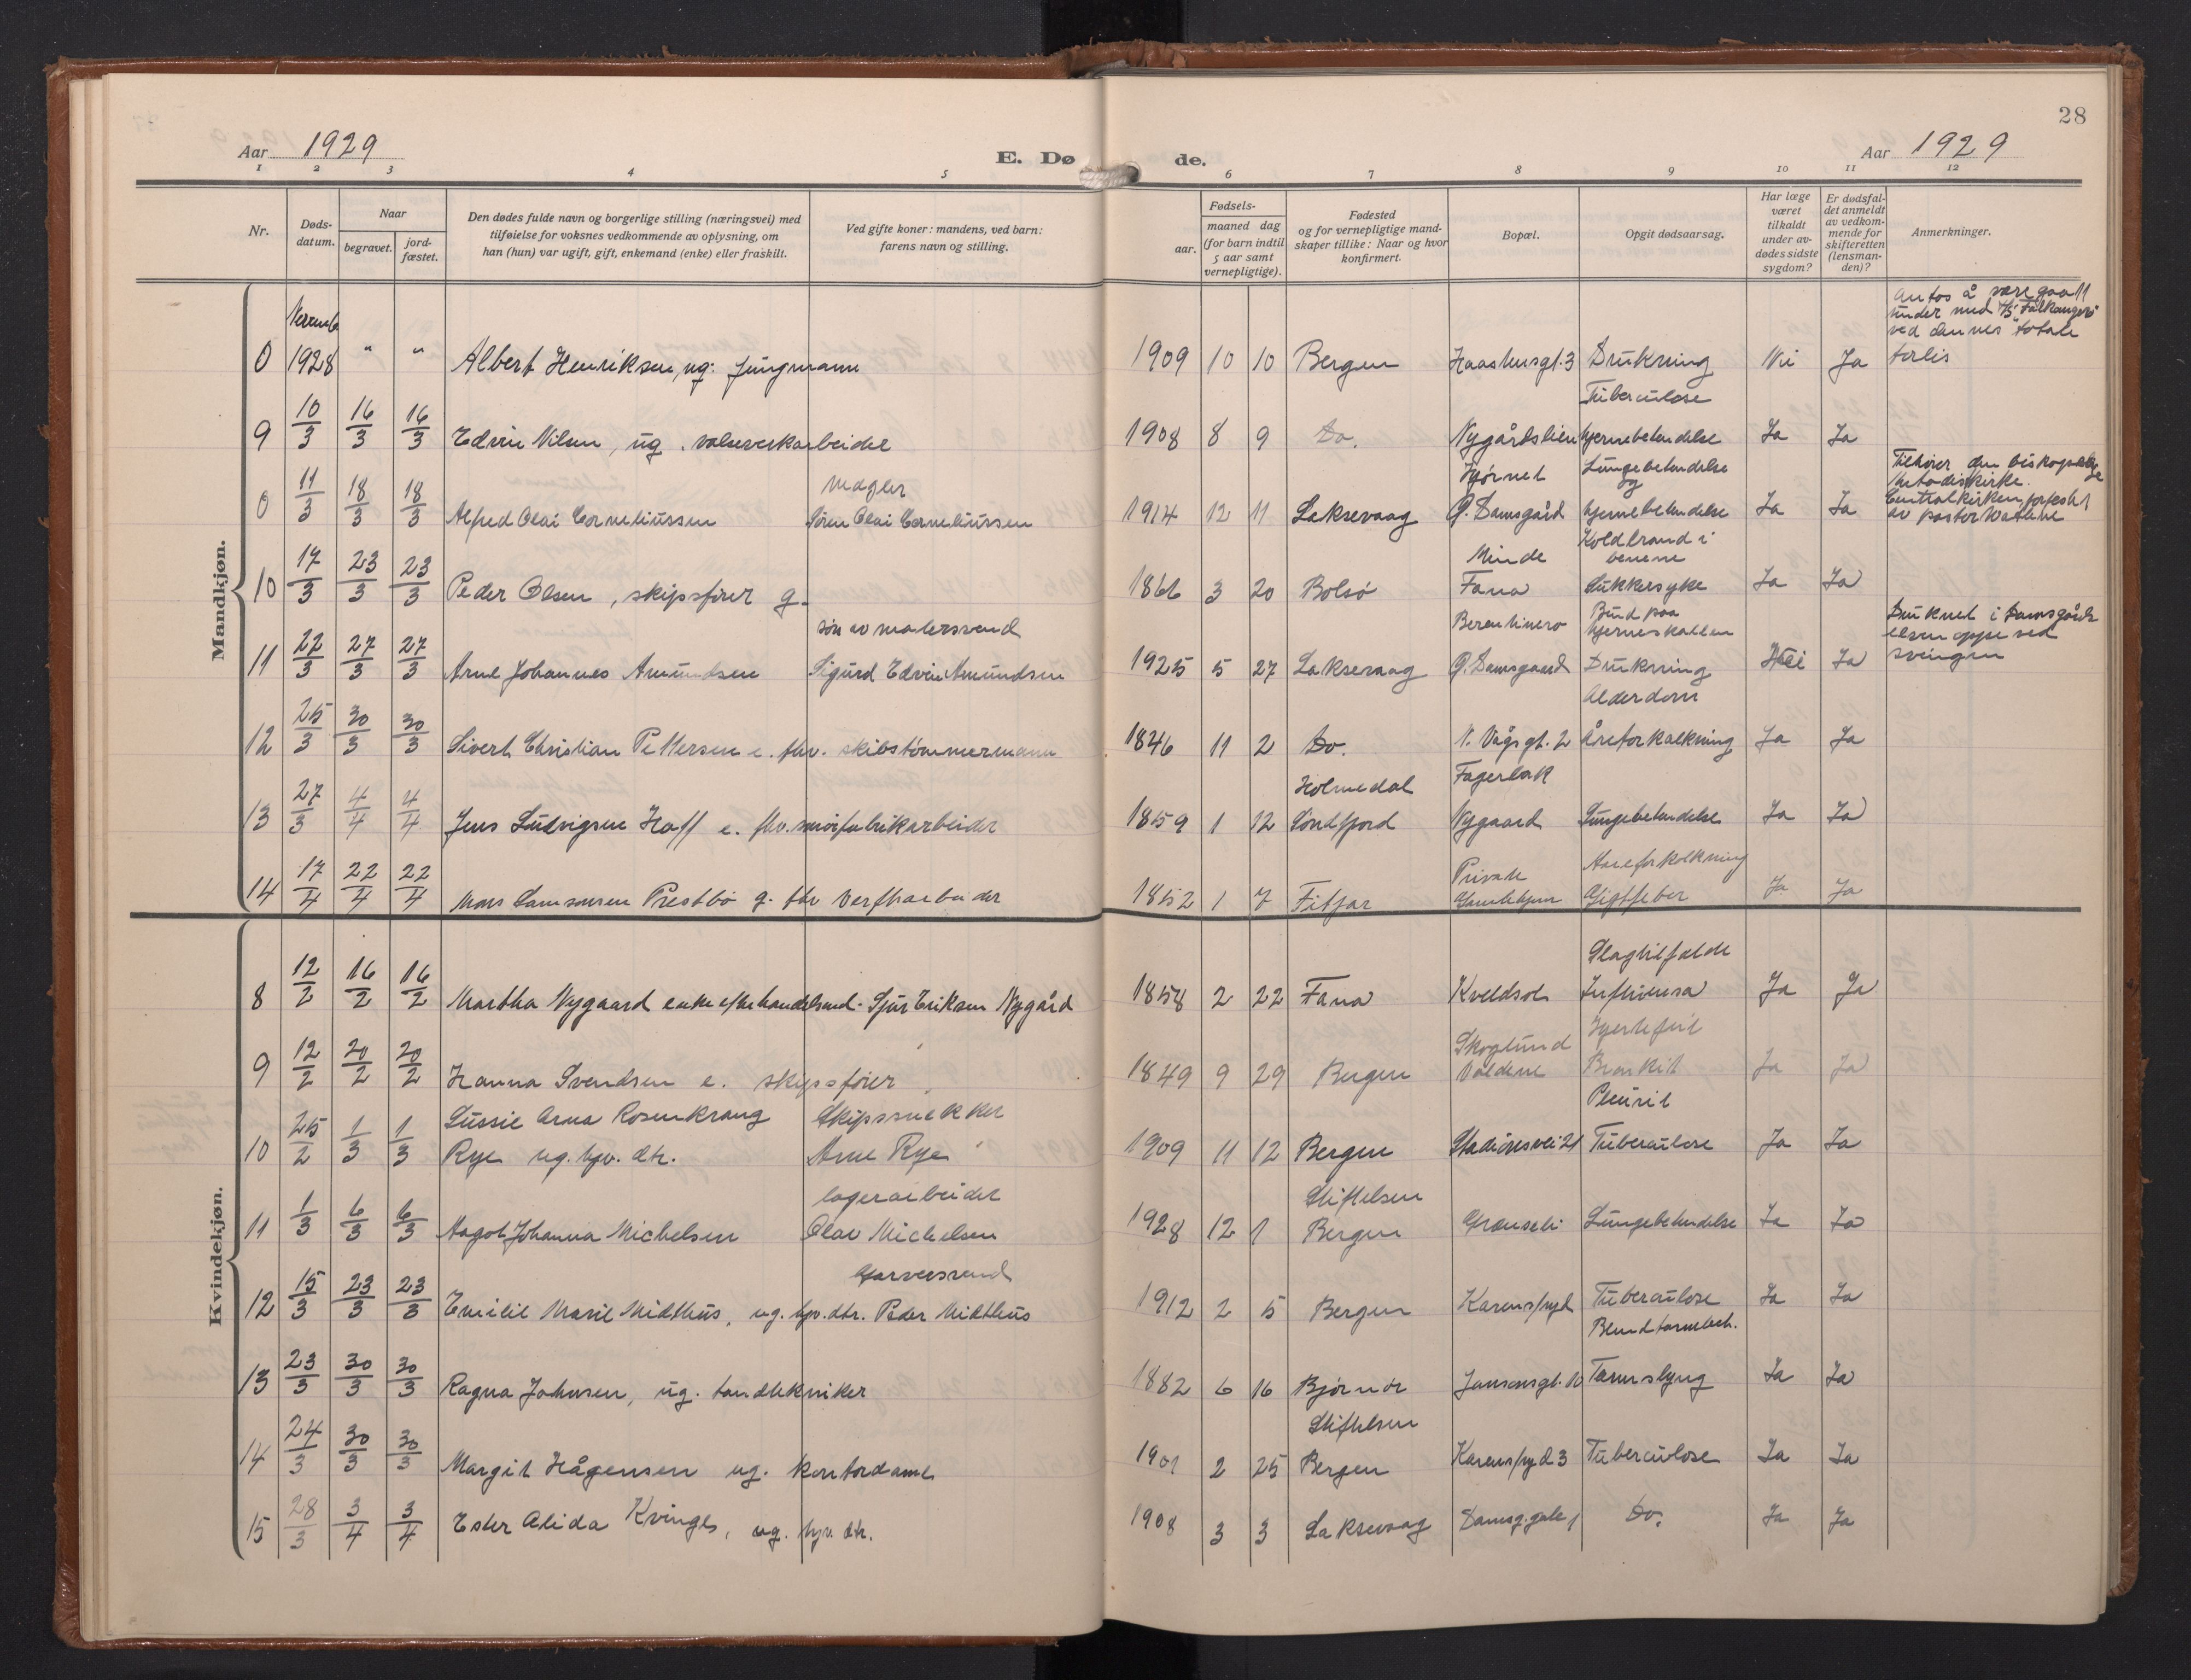 28
Aar 1929
E. Dø de.
Aar 1929
1 2 3 4 5 6 7 8 9 10 11 12
Nr.
Døds-
datum.
Naar
begravet.
jord-
fæstet.
Den dødes fulde navn og borgerlige stilling (næringsvei) med
tilføielse for voksnes vedkommende av oplysning, om
han (hun) var ugift, gift, enkemand (enke) eller fraskilt.
Ved gifte koner: mandens, ved barn:
farens navn og stilling.
Fødsels-
aar.
maaned dag
(for barn indtil
5 aar samt
vernepligtige).
Fødested
og for vernepligtige mand-
skaper tillike: Naar og hvor
konfirmert.
Bopæl.
Opgit dødsaarsag.
Har læge
været
tilkaldt
under av-
dødes sidste
sygdom?
Er dødsfal-
det anmeldt
av vedkom-
mende for
skifteretten
(lensman-
den)?
Anmerkninger.
Mandkjøn.
Antos å være gaatt
under med
ved dennes totale
forlis
0 1928 " " Albert Henriksen, ug. jungmann 1909 10 10 Bergen Haastensgt. 3 Drukning Nei Ja
Tuberculose
9 10/3 16/3 16/3 Edvin Nilsen, ug. valseverkarbeider 1908 8 9 Do. Nygårdslien hjernebetendelse Ja Ja
Mægler Hjørnet Lungebetendelse Tilhører den biskopelige
og Metodistkirke.
0 11/3 18/3 18/3 Alfred Olai Corneliussen Søren Olai Corneliussen 1914 12 11 Laksevaag G. Damsgård hjernebetendelse Ja Ja Centralkirken, jorfestet
av pastor
Minde Koldbrand i
benene
10 17/3 23/3 23/3 Peder Olsen, skipsfører g. 1866 3 20 Bolsø Fana Sukkersyke Ja Ja
søn av malersvend Brud paa
hjerneskallen Druknet i Damsgårds
elven oppe ved
svingen
11 22/3 27/3 27/3 Arne Johannes Amundsen Sigurd Edvin Amundsen 1925 5 27 Laksevaag G. Damsgaard Drukning Nei Ja
Alderdom
12 25/3 30/3 30/3 Sivert Christian Pettersen e. fhv. skibstømmermann 1846 11 2 Do. N. Vågsgt. 2 Åreforkalkning Ja Ja
Holmedal Fagerbak
13 27/3 4/4 4/4 Jens Ludvigsen Haff e. fhv. smørfabrikarbeider 1859 1 12 Søndfjord Nygaard Lungebetendelse Ja Ja
Private Aareforkalkning
14 17/4 22/4 22/4 Mons Samsonsen Prestbø g. fhv verftsarbeider 1852 1 7 Fitjar Gamlehjem Gigtfeber Ja Ja
Kvindekjøn.
Slagtilfælde
8 12/2 16/2 16/2 Martha Nygaard enke efter handelsmd. Sjur Eriksen Nygård 1858 2 22 Fana Kveldsol Influensa Ja Ja
Skoglund Hjertefeil
9 12/2 20/2 20/2 Hanna Svendsen e. skipsfører 1849 9 29 Bergen Våldene Bronkit Ja Ja
Sussie Arna Rosenkrans Skipssnekker Pleurit
10 25/2 1/3 1/3 Rye ug. hjv. dtr. Arne Rye 1909 11 12 Bergen Stadionsvei 21 Tuberculose Ja Ja
lagerarbeider Stiftelsen
11 1/3 6/3 6/3 Aagot Johanna Michelsen Olav Michelsen 1928 12 1 Bergen Grønseli Lungebetendelse Ja Ja
Garversvend
12 15/3 23/3 23/3 Emilie Marie Midthus, ug. hjv. dtr. Peder Midthus 1912 2 5 Bergen Karensfryd Tuberculose Ja Ja
Blindtarmbet.
13 23/3 30/3 30/3 Ragna Johnsen, ug. tandtekniker 1882 6 16 Bjørnør Jansonsgt. 10 Tarmslyng Ja Ja
Stiftelsen
14 24/3 30/3 30/3 Margit Hågensen ug. kontordame 1901 2 25 Bergen Karensfryd 3 Tuberculose Ja Ja
15 28/3 3/4 3/4 Ester Alida Kvinge, ug. hjv. dtr. 1908 3 3 Laksevaag Damsg.gate 1 Do. Ja Ja